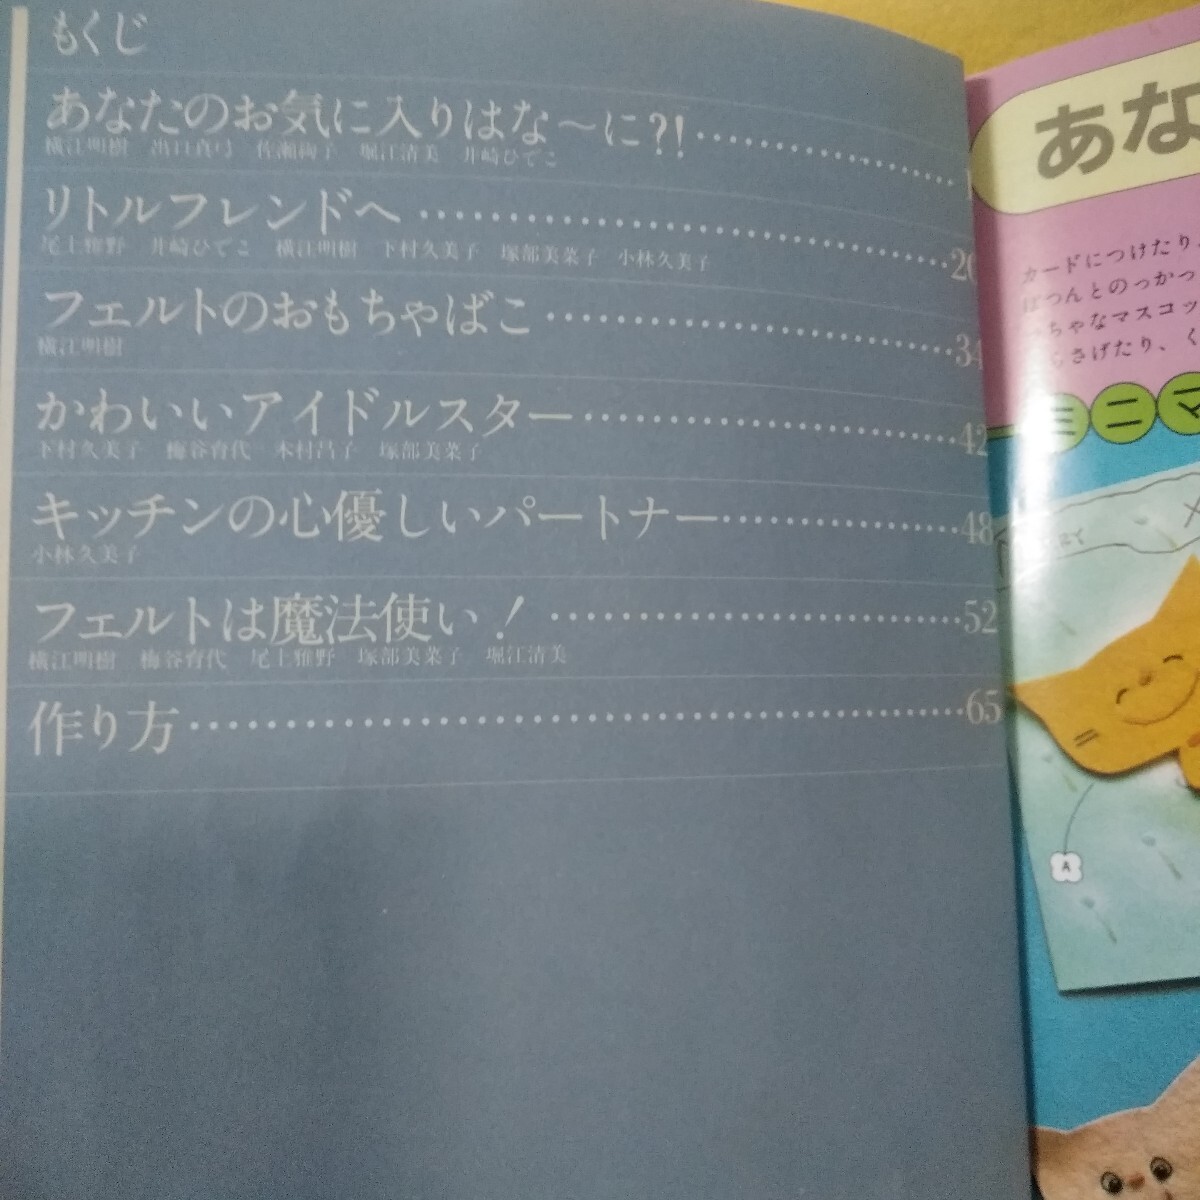 もくじ
あなたのお気に入りはな〜に?!……………
横江明樹 出口真弓 佐瀬絢子 堀江清美 井崎ひでこ
リトルフレンドへ……………20
尾上雅野 井崎ひでこ 横江明樹 下村久美子 塚部美菜子 小林久美子
フェルトのおもちゃばこ……………34
横江明樹
かわいいアイドルスター……………42
下村久美子 梅谷育代 木村昌子 塚部美菜子
キッチンの心優しいパートナー……………48
小林久美子
フェルトは魔法使い!……………52
横江明樹 梅谷育代 尾上雅野 塚部美菜子 堀江清美
作り方……………65
あな
カードにつけたり、
ぽつんとのっかっ
っちゃなマスコッ
さげたり、く
ミニマ
A